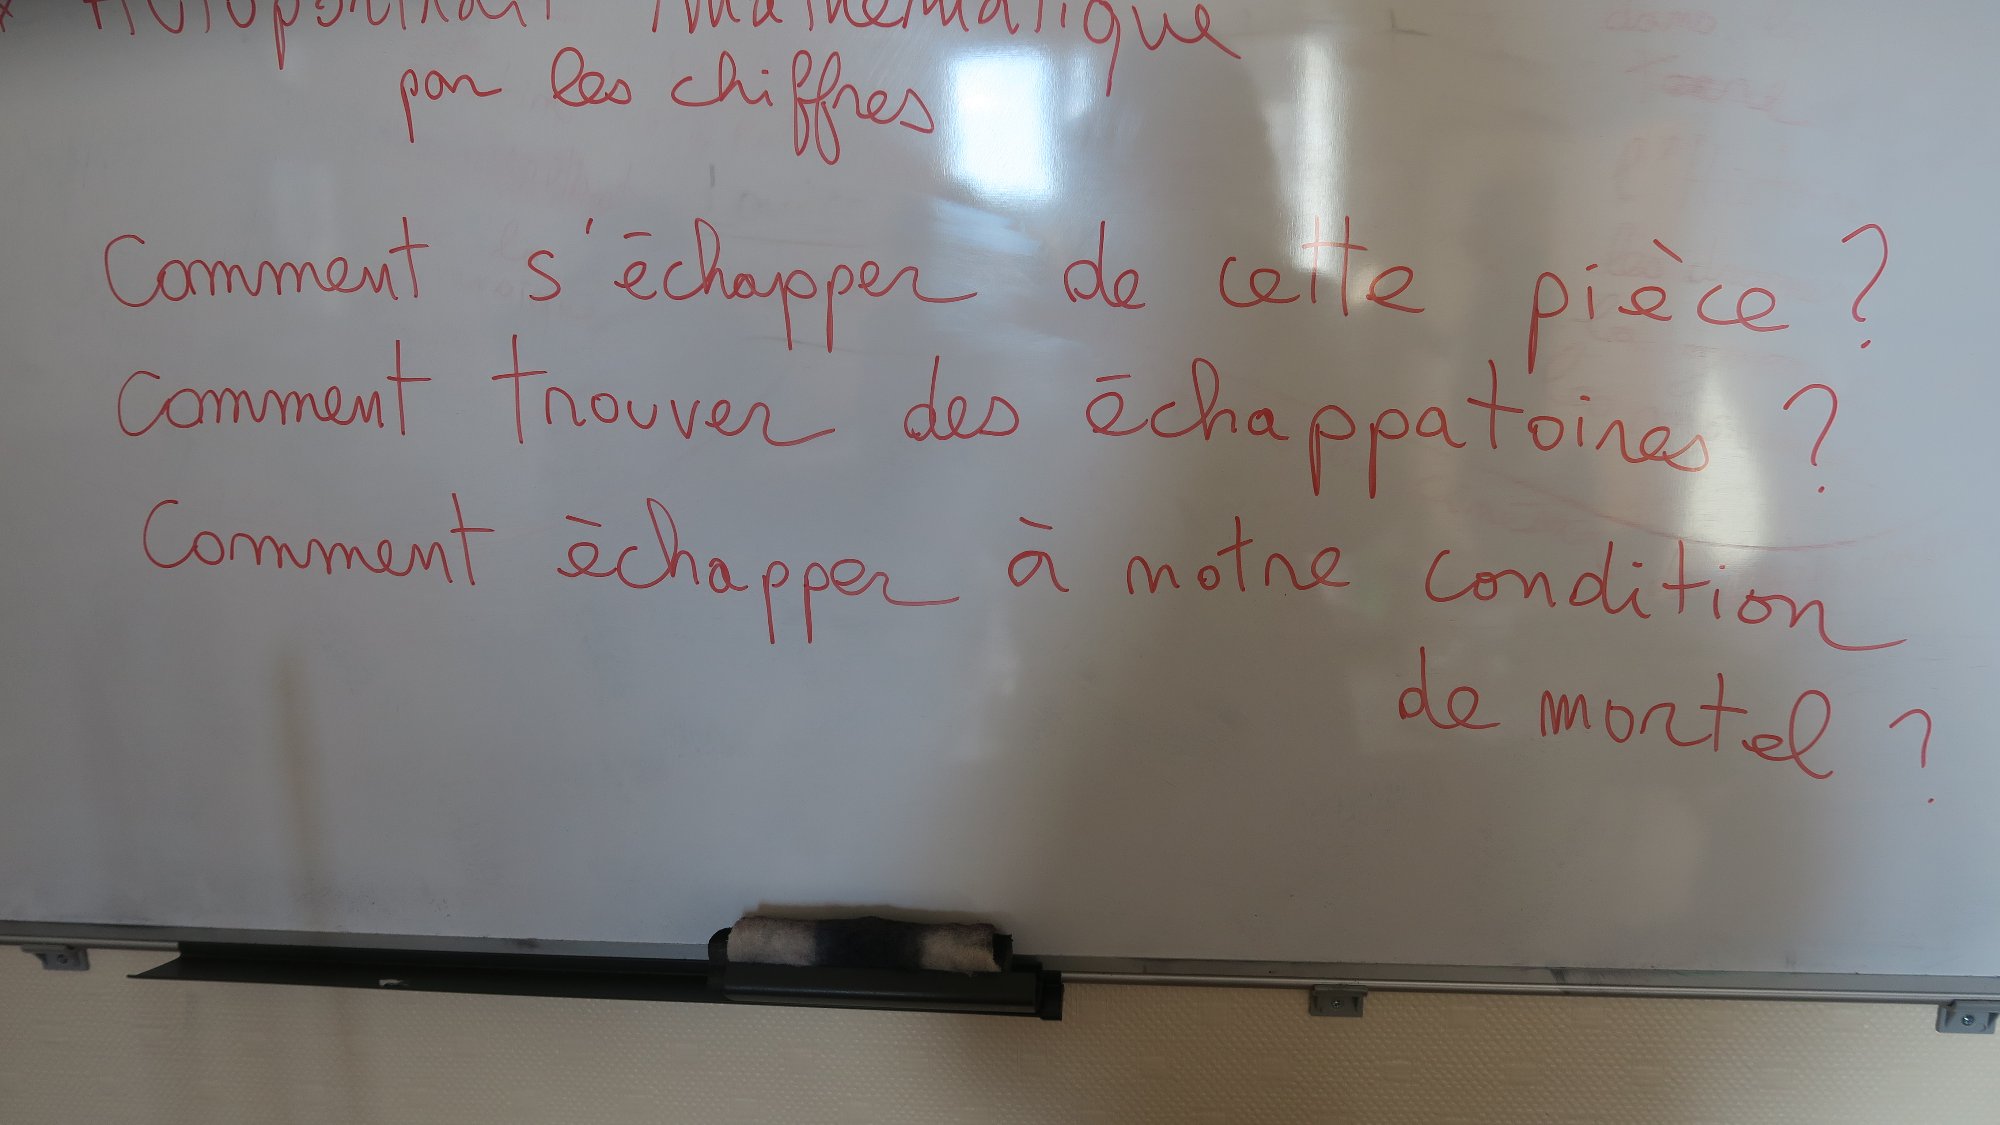 Autoportrait mathématique
par les chiffres
Comment s'échapper de cette pièce ?
Comment trouver des échappatoires ?
Comment échapper à notre condition
de mortel ?